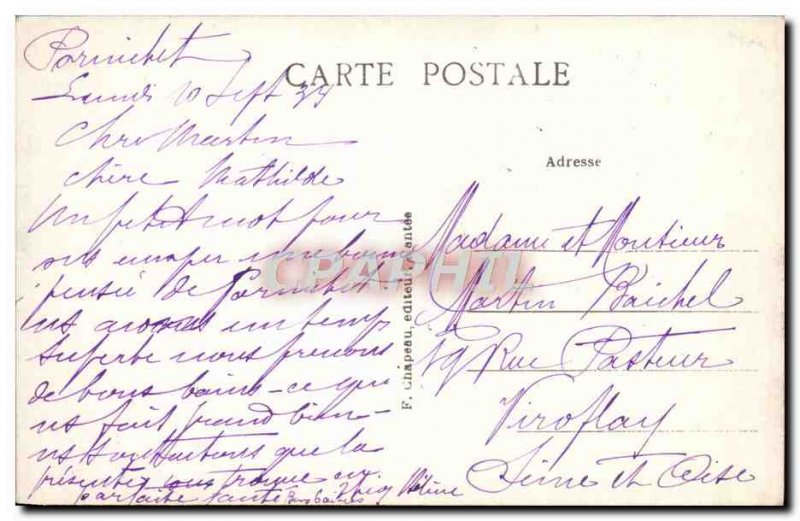 Pornichet
Lundi 10 Sept 34
Cher Martin
chère Mathilde
Un petit mot pour
vs envoyer une bonne
pensée de Pornichet
ns avons un temps
superbe nous prenons
de bons bains - ce qui
ns fait grand bien -
ns souhaitons que la
présente vous trouve en
parfaite santé Bons baisers Hélène
CARTE POSTALE
Adresse
Madame et Monsieur
Martin Baichel
19 Rue Pasteur
Viroflay
Seine et Oise
F. Chapeau, éditeur, Nantes
CPAPHIL